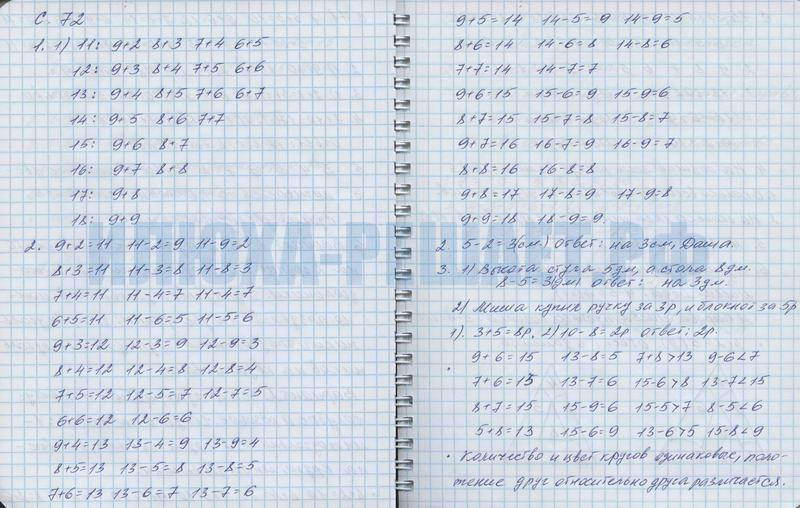 С. 72
1. 1) 11: 9+2 8+3 7+4 6+5
12: 9+3 8+4 7+5 6+6
13: 9+4 8+5 7+6 6+7
14: 9+5 8+6 7+7
15: 9+6 8+7
16: 9+7 8+8
17: 9+8
18: 9+9
2. 9+2=11 11-2=9 11-9=2
8+3=11 11-3=8 11-8=3
7+4=11 11-4=7 11-4=7
6+5=11 11-6=5 11-5=6
9+3=12 12-3=9 12-9=3
8+4=12 12-4=8 12-8=4
7+5=12 12-5=7 12-7=5
6+6=12 12-6=6
9+4=13 13-4=9 13-9=4
8+5=13 13-5=8 13-8=5
7+6=13 13-6=7 13-7=6
9+5=14 14-5=9 14-9=5
8+6=14 14-6=8 14-8=6
7+7=14 14-7=7
9+6=15 15-6=9 15-9=6
8+7=15 15-7=8 15-8=7
9+7=16 16-7=9 16-9=7
8+8=16 16-8=8
9+8=17 17-8=9 17-9=8
9+9=18 18-9=9
2. 5-2=3(см) Ответ: на 3см, Даша.
3. 1) Высота стула 5дм, а стола 8дм.
8-5=3(дм) ответ: на 3дм.
2) Миша купил ручку за 3р, и блокнот за 5р
1). 3+5=8р. 2) 10-8=2р ответ: 2р.
9+6=15 13-8=5 7+8>13 9-6<7
7+6=15 13-7=6 15-6>8 13-7<15
8+7=15 15-9=6 15-5>7 8-5<6
5+8=13 15-6=9 13-6>5 15-8<9
• Количество и цвет кругов одинаковые, поло-
тение друг относительно друга различается.